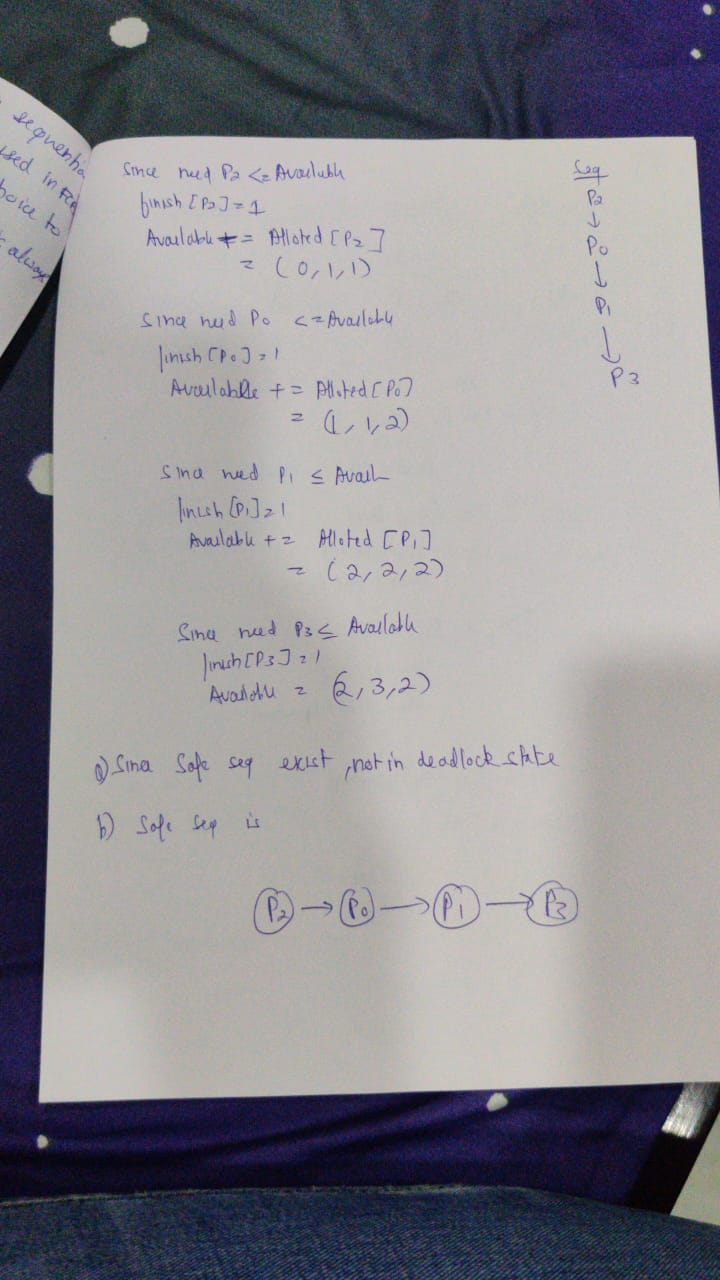 sequentia
used in
hoice to
always
Since need P2 <= Available
finish [P2] = 1
Available += Alloted [P2]
= (0,1,1)
Since need P0 <= Available
finish [P0] = 1
Available += Alloted [P0]
= (1,1,2)
Since need P1 ≤ Avail
finish [P1] = 1
Available += Alloted [P1]
= (2,2,2)
Since need P3 ≤ Available
finish [P3] = 1
Available = (2,3,2)
a) Since Safe seq exist, not in deadlock state
b) Safe Seq is
P2 → P0 → P1 → P3
Seq
P2
↓
P0
↓
P1
↓
P3